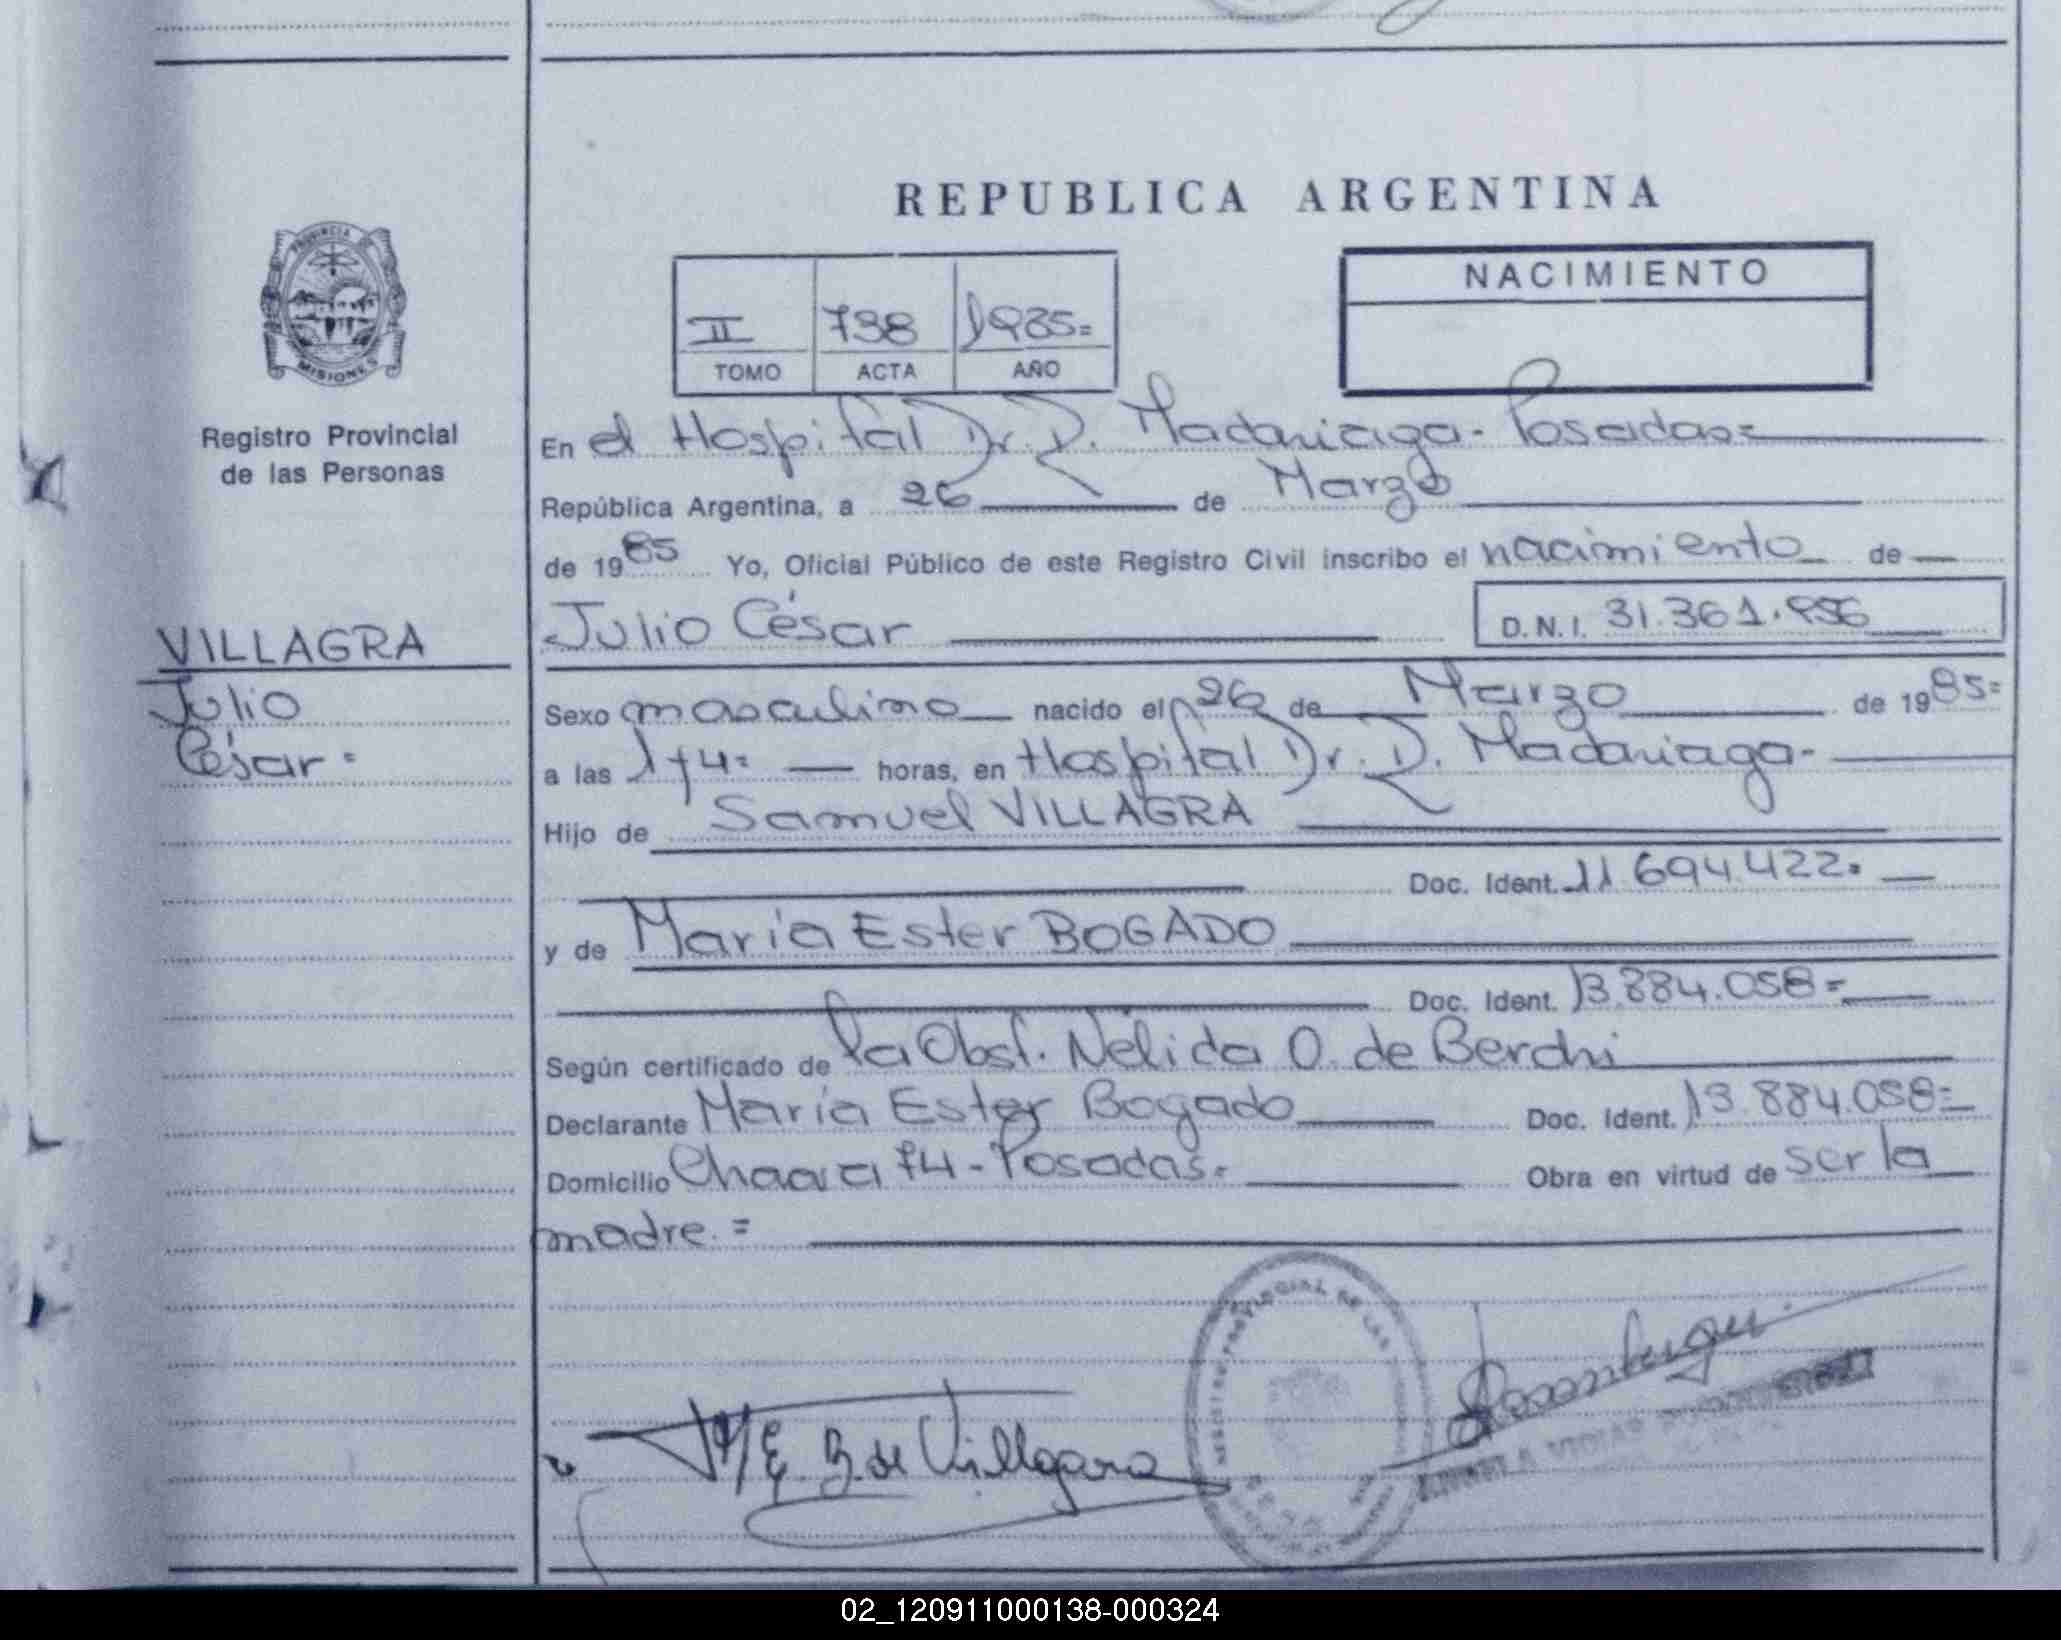 REPUBLICA ARGENTINA
PROVINCIA DE
MISIONES
Registro Provincial
de las Personas
VILLAGRA
Julio
César =
II 738 1985=
TOMO ACTA AÑO
NACIMIENTO
En el Hospital Dr. R. Madariaga - Posadas=
República Argentina, a 26 de Marzo
de 1985 Yo, Oficial Público de este Registro Civil inscribo el nacimiento de
Julio César D.N.I. 31.361.956
Sexo masculino nacido el 26 de Marzo de 1985=
a las horas, en Hospital Dr. R. Madariaga-
Hijo de Samuel VILLAGRA
Doc. Ident. 11.694.422=
y de María Ester BOGADO
Doc. Ident. 13.884.058=
Según certificado de la Obst. Nélida O. de Berchi
Declarante María Ester Bogado Doc. Ident. 13.884.058=
Domicilio Chacra 74 - Posadas= Obra en virtud de ser la
madre. =
M/E. B. de Villagra
PROVINCIAL DE LAS
02_120911000138-000324